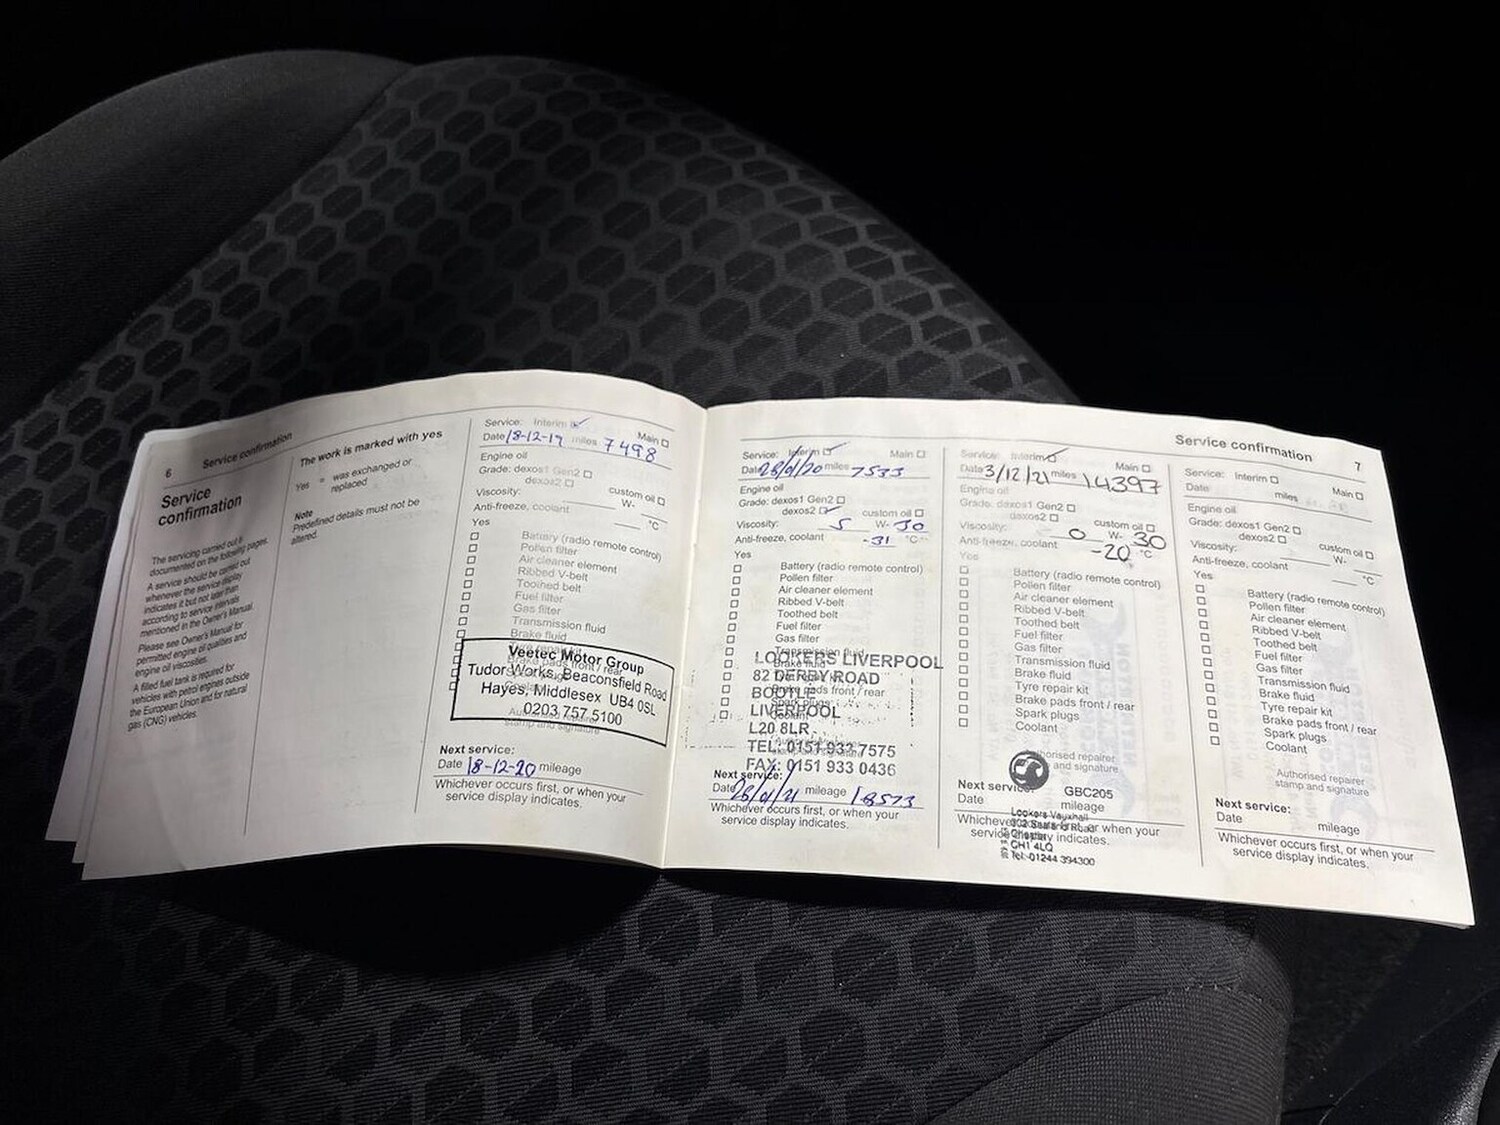 6
Service confirmation
Service
confirmation
The servicing carried out is
documented on the following pages.
A service should be carried out
whenever the service display
indicates it but not later than
according to service intervals
mentioned in the Owner's Manual.
Please see Owner's Manual for
permitted engine oil qualities and
engine oil viscosities.
A filled fuel tank is required for
vehicles with petrol engines outside
the European Union and for natural
gas (CNG) vehicles.
The work is marked with yes
Yes = was exchanged or
replaced
Note
Predefined details must not be
altered.
Service: Interim Main
Date 18-12-19 miles 7498
Engine oil
Grade: dexos1 Gen2
dexos2
Viscosity: custom oil
W-
Anti-freeze, coolant °C
Yes
Battery (radio remote control)
Pollen filter
Air cleaner element
Ribbed V-belt
Toothed belt
Fuel filter
Gas filter
Transmission fluid
Brake fluid
Brake pads front / rear
Veetec Motor Group
Tudor Works, Beaconsfield Road
Hayes, Middlesex UB4 0SL
0203 757 5100
stamp and signature
Next service:
Date 18-12-20 mileage
Whichever occurs first, or when your
service display indicates.
Service confirmation 7
Service: Interim Main
Date 28/01/20 miles 7533
Engine oil
Grade: dexos1 Gen2
dexos2 custom oil
Viscosity: 5 W- 30
Anti-freeze, coolant -31 °C
Yes
Battery (radio remote control)
Pollen filter
Air cleaner element
Ribbed V-belt
Toothed belt
Fuel filter
Gas filter
Transmission fluid
Brake fluid
Brake pads front / rear
Spark plugs
Coolant
LOOKERS LIVERPOOL
82 DERBY ROAD
BOOTLE
LIVERPOOL
L20 8LR
TEL: 0151 933 7575
FAX: 0151 933 0436
Next service:
Date 28/01/21 mileage 18573
Whichever occurs first, or when your
service display indicates.
Service: Interim Main
Date 3/12/21 miles 14397
Engine oil
Grade: dexos1 Gen2
dexos2 custom oil
Viscosity: 0 W- 30
Anti-freeze, coolant -20 °C
Yes
Battery (radio remote control)
Pollen filter
Air cleaner element
Ribbed V-belt
Toothed belt
Fuel filter
Gas filter
Transmission fluid
Brake fluid
Tyre repair kit
Brake pads front / rear
Spark plugs
Coolant
Authorised repairer
stamp and signature
GBC205
Next service:
Date mileage
Lookers Vauxhall
Chester
CH1 4LQ
Tel: 01244 394300
Whichever occurs first, or when your
service display indicates.
Service: Interim Main
Date miles
Engine oil
Grade: dexos1 Gen2
dexos2 custom oil
Viscosity: W-
Anti-freeze, coolant °C
Yes
Battery (radio remote control)
Pollen filter
Air cleaner element
Ribbed V-belt
Toothed belt
Fuel filter
Gas filter
Transmission fluid
Brake fluid
Tyre repair kit
Brake pads front / rear
Spark plugs
Coolant
Authorised repairer
stamp and signature
Next service:
Date mileage
Whichever occurs first, or when your
service display indicates.